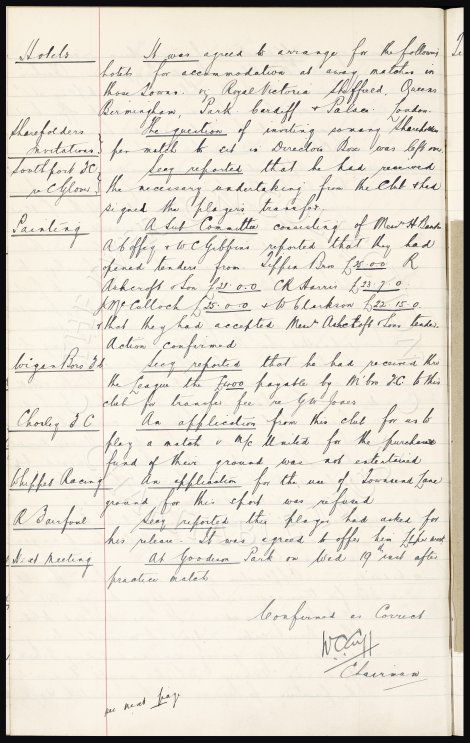 Hotels
It was agreed to arrange for the following
hotels for accommodation at away matches in
those towns. viz Royal Victoria Sheffield, Queens
Birmingham, Park Cardiff & Palace London.
Shareholders
Invitations
The question of inviting so many Shareholders
per match to sit in Directors Box was left over.
Southport F.C.
re C Glover
Secy reported that he had received
the necessary undertaking from the Club & had
signed the players transfer.
Painting
A Sub Committee consisting of Messrs H Banks
A Coffey & W C Gibbins reported that they had
opened tenders from Tiffin Bros R
Ashcroft & Son £21.0.0 C R Harris £23.7.0
J McCulloch £25.0.0 & W Clarkson £22.15.0
& that they had accepted Messrs Ashcroft & Sons tender.
Action confirmed
Wigan Boro F.C.
Secy reported that he had received thro
the League the payable by M'bro F.C. to this
club for transfer fee re G W Jones
Chorley F C
An application from this club for us to
play a match v M/c United for the purchase
fund of their ground was not entertained
Whippet Racing
An application for the use of Townsend Lane
ground for this sport was refused
Secy reported this player had asked for
his release. It was agreed to offer him week
Nxt meeting
At Goodison Park on Wed 19th inst after
practice match
Confirmed as Correct
W.C. Cuff
Chairman
see next page